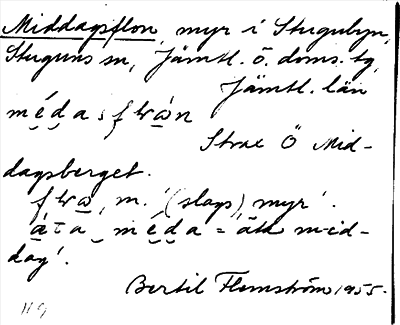 Middagsflon, myr i Stugubyn,
Stuguns sn, Jämtl. ö. doms. tg,
Jämtl. län
Strax Ö Mid-
dagsberget.
m. '(slags) myr'.
= äta mid-
dag'.
Bertil Flemström 1955.